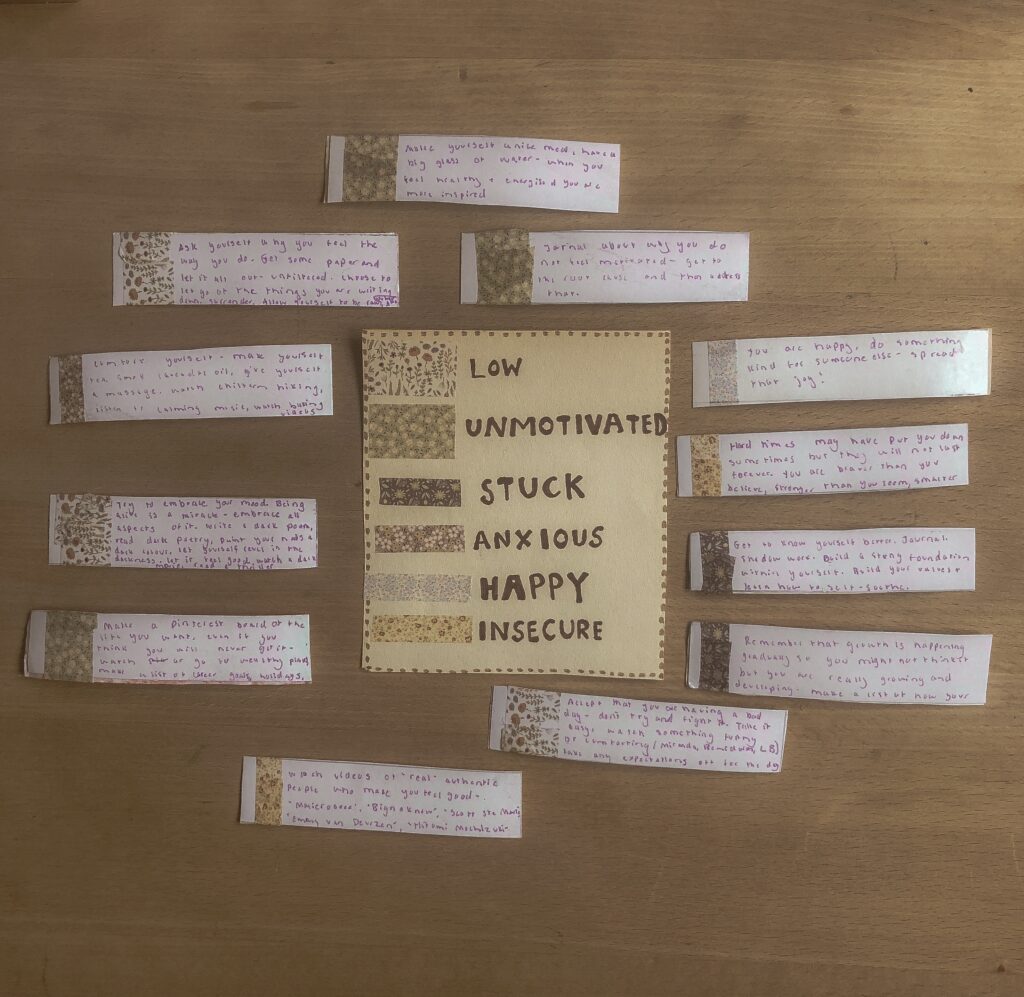 Make yourself a nice meal, have a
big glass of water - when you
feel healthy + energised you are
more inspired
Ask yourself why you feel the
way you do. Get some paper and
let it all out - unfiltered. choose to
let go of the things you are writing
down. surrender. Allow yourself to be
Jornal about why you do
not feel motivated - get to
the root cause and then address
that.
comfort yourself - make yourself
tea, smell lavender oil, give yourself
a massage. watch children
listen to calming music, watch
videos
LOW
UNMOTIVATED
STUCK
ANXIOUS
HAPPY
INSECURE
You are happy, do something
kind for someone else - spread
that joy!
Hard times may have put you down
sometimes but they will not last
forever. You are braver than you
believe, stronger than you seem, smarter
Try to embrace your mood. Being
alive is a miracle - embrace all
aspects of it. write a dark poem,
read dark poetry, paint your nails a
dark colour. let yourself revel in the
darkness - let it feel good. watch a dark
movie, read a thriller
Get to know yourself better. Journal.
Shadow work. Build a strong foundation
within yourself. Build your values +
learn how to self-soothe.
Make a pinterest board of the
life you want, even if you
think you will never get it -
watch or go to wealthy places
make a list of career goals, holidays,
Remember that growth is happening
gradually so you might not think it
but you are really growing and
developing - make a list of how your
Accept that you are having a bad
day - don't try and fight it. Take it
easy, watch something funny
or comforting (Miranda, LB)
take any expectations off for the day
Watch videos of "real" authentic
people who make you feel good -
"Emmy van Deurzen",